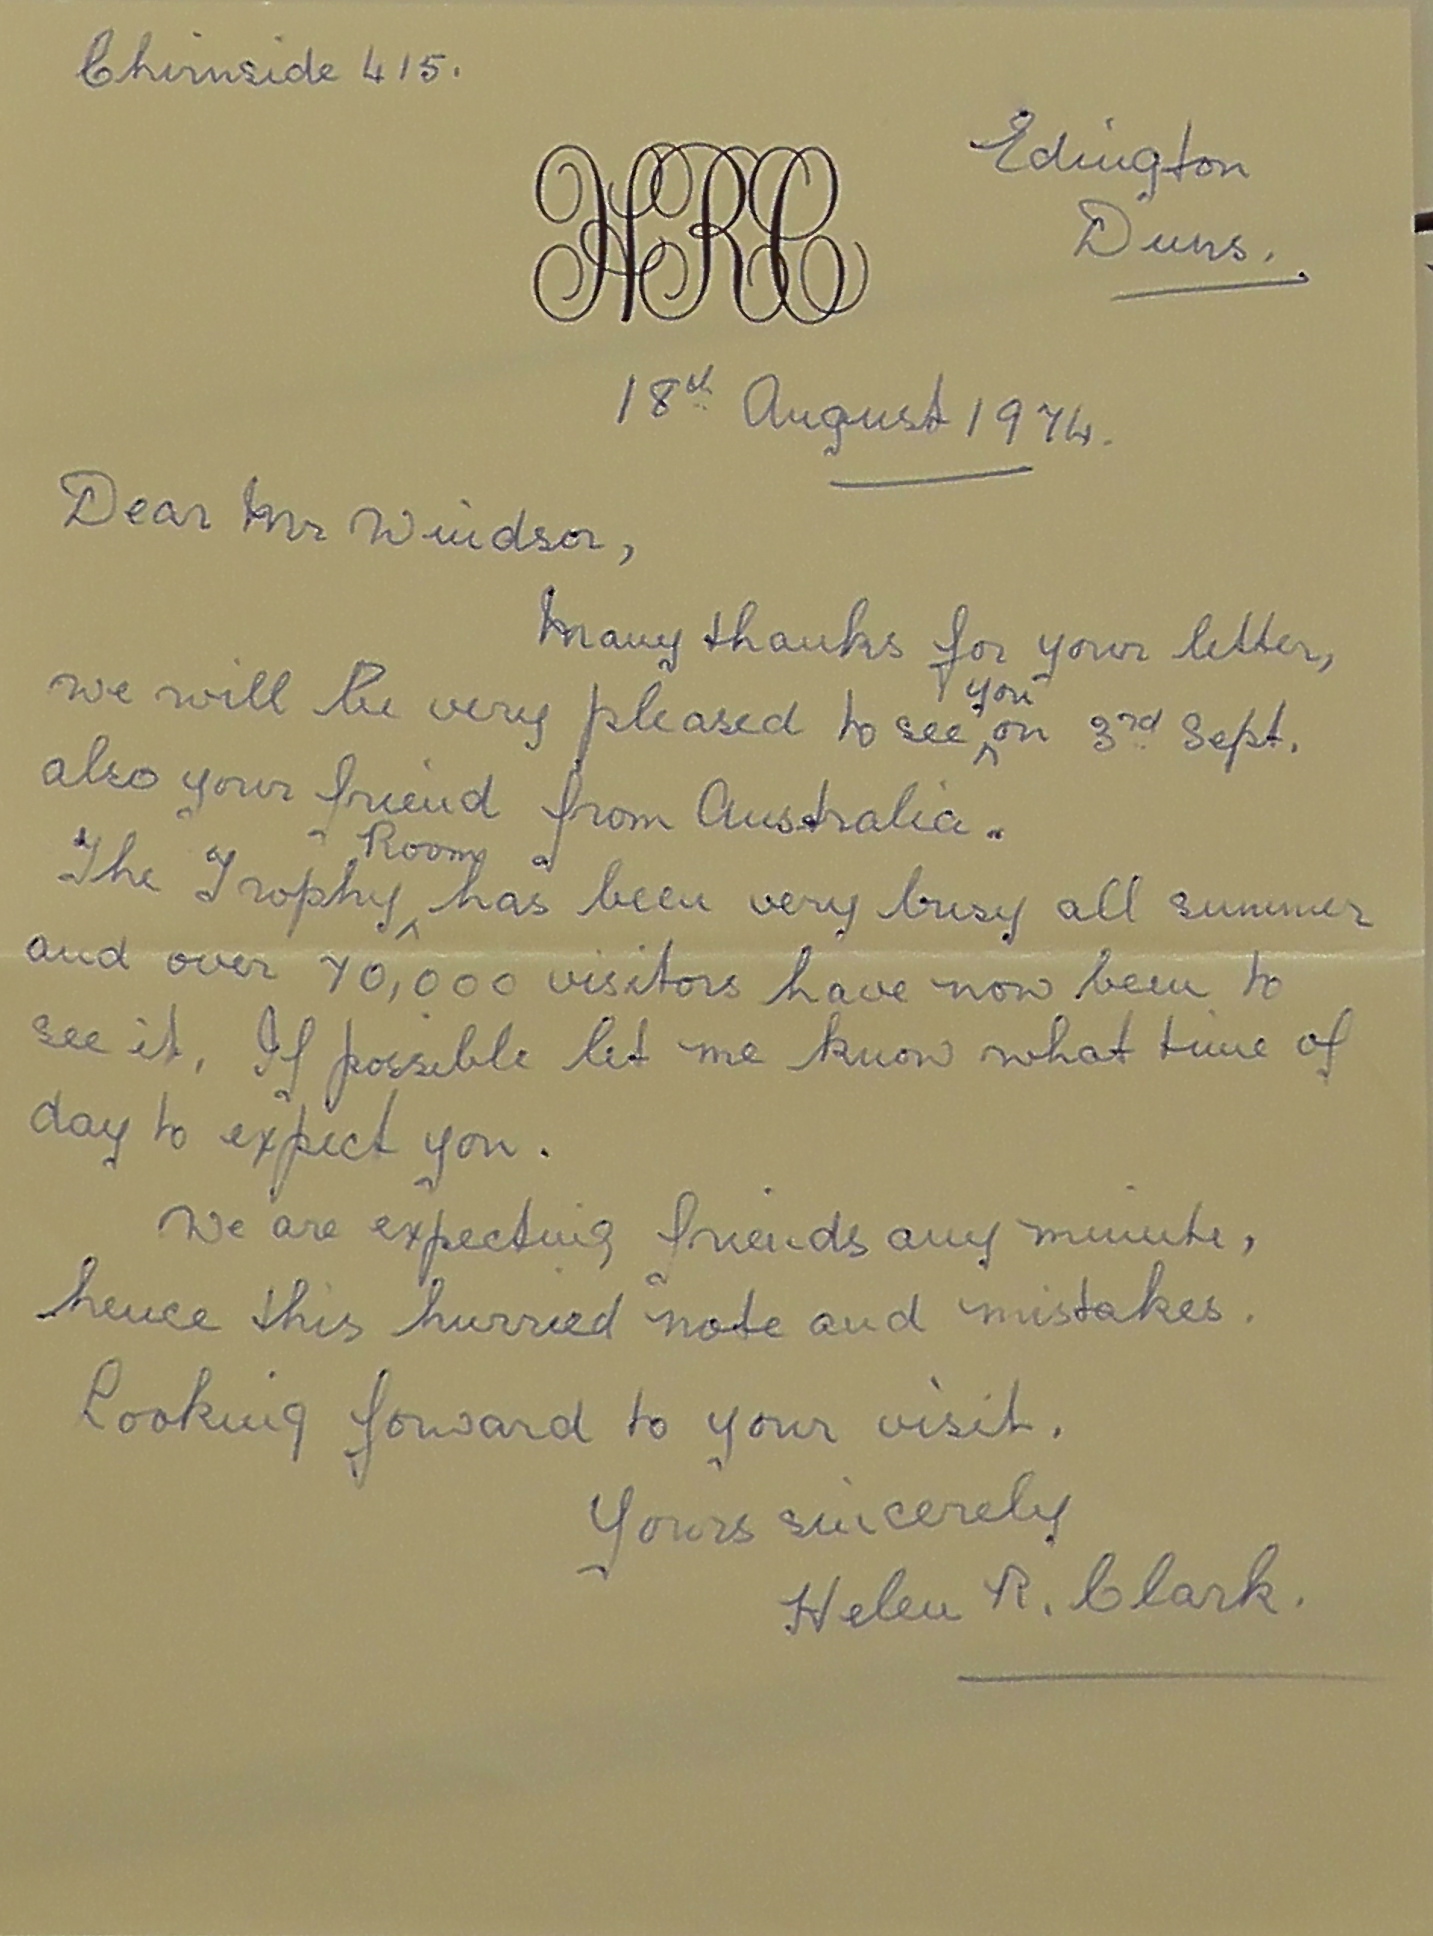 Chirnside 415.
Edington
Duns.
HRC
18th August 1974.
Dear Mr Windsor,
Many thanks for your letter,
we will be very pleased to see you on 3rd Sept.
also your friend from Australia.
The Trophy Room has been very busy all summer
and over 70,000 visitors have now been to
see it. If possible let me know what time of
day to expect you.
We are expecting friends any minute,
hence this hurried note and mistakes.
Looking forward to your visit.
Yours sincerely
Helen R. Clark.